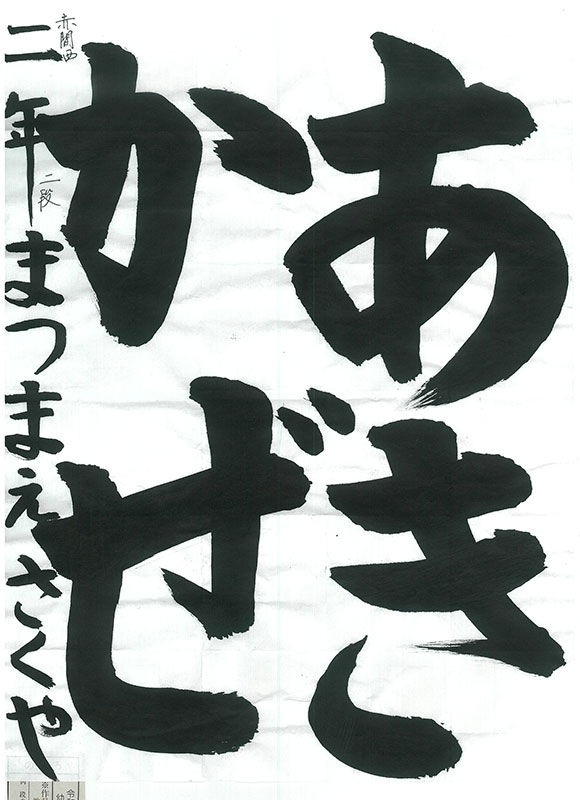 あき
かぜ
赤間西
二年 まつまえさくや
二段